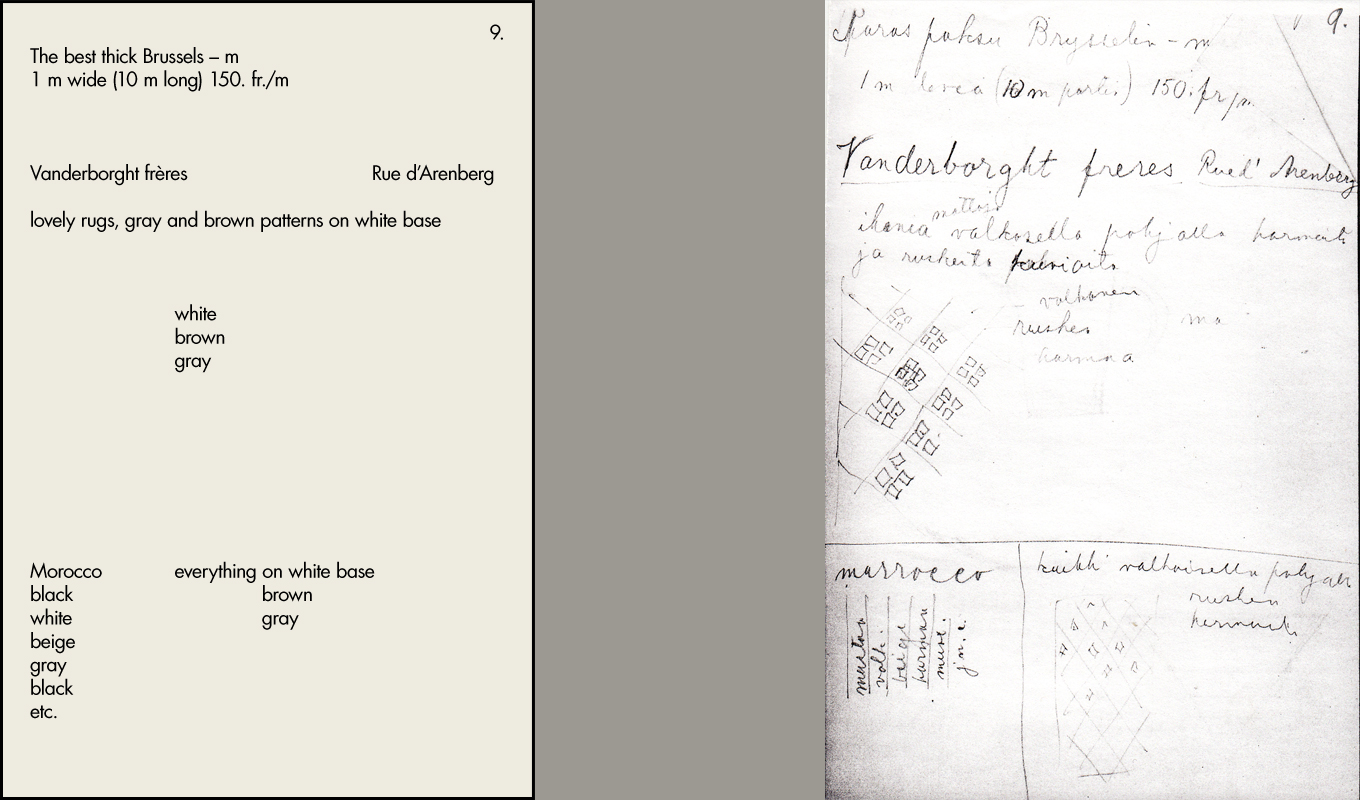 9.
The best thick Brussels – m
1 m wide (10 m long) 150. fr./m
Vanderborght frères Rue d'Arenberg
lovely rugs, gray and brown patterns on white base
white
brown
gray
Morocco everything on white base
black brown
white gray
beige
gray
black
etc.
9.
Paras paksu Brysselin – m
1 m leveä (10 m ) 150. fr/m
Vanderborght freres Rue d' Arenberg
mattoja
ihania valkosella pohjalla harmaita
ja ruskeita kuvioita
valkonen
ruskea ma
harmaa
marrocco kaikki valkoisella pohjall
ruskea
mustaa
valk.
beige
harmaa
must.
j.n.e.